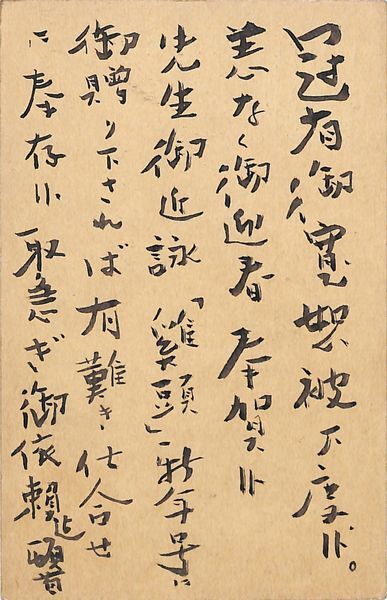 御寛恕被下度候。
恙なく御迎春奉賀候
先生御近詠「雞頭」新年号に
御贈り下されば有難き仕合せ
に奉存候 取急ぎ御依頼迄 頓首